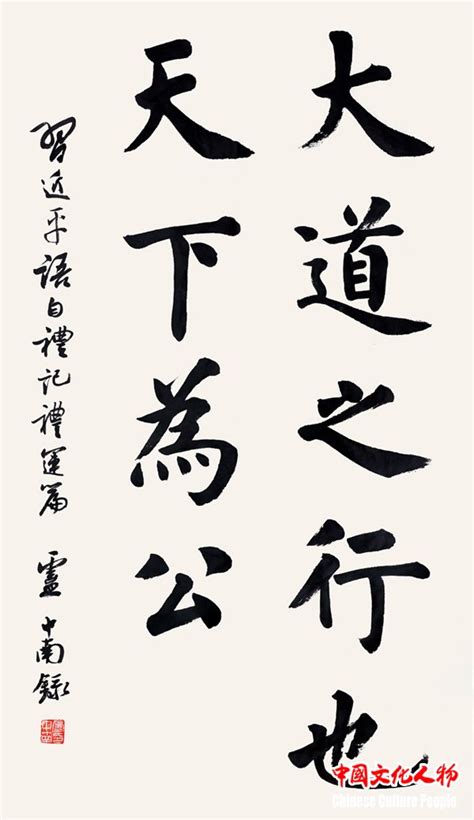 大道之行也
天下為公
習近平語自禮記禮運篇 盧中南錄
中國文化人物
Chinese Culture People